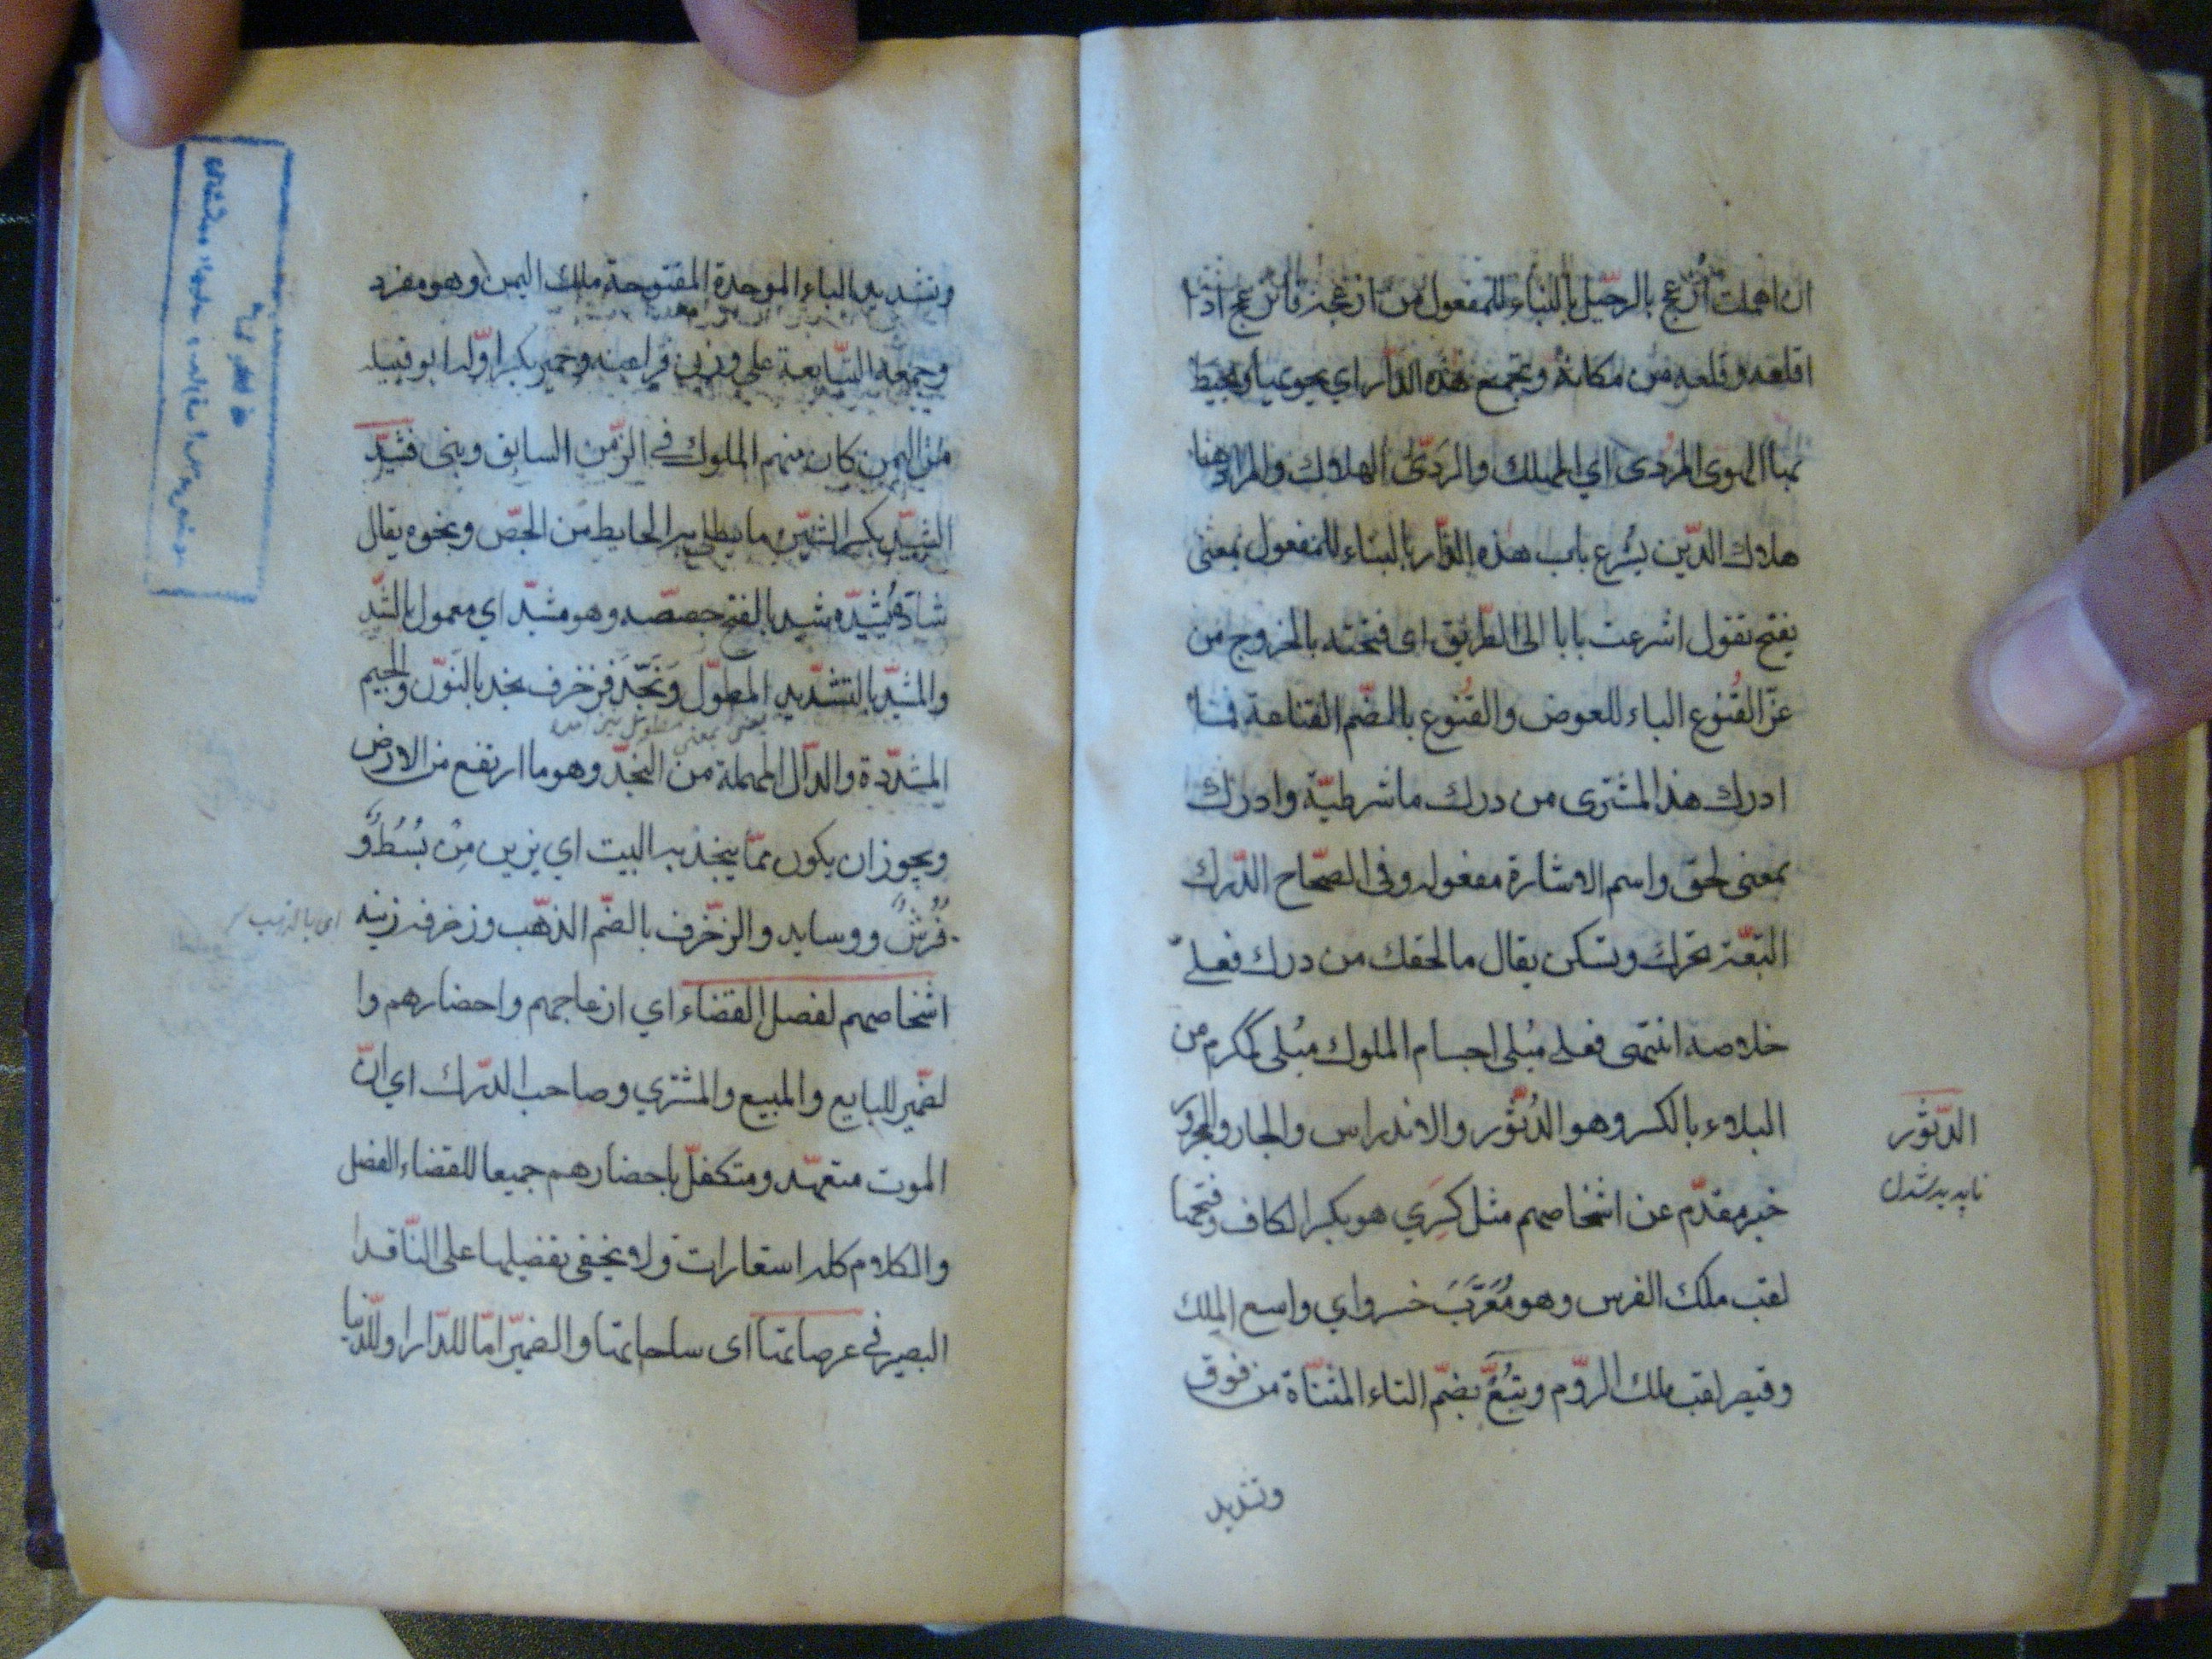 ان اهملت اُزعج بالرحيل بالبناء للمفعول من ازعجه فانزعج اذا
اقلعه وقلعه من مكانه ويجمع هذه الدار اي يحوي
الهوى المردى اي المهلك والردى الهلاك والمراد هنا
هلاك الدين يشرع باب هذه الدار بالبناء للمفعول بمعنى
يفتح تقول اشرعت بابا الى الطريق اى فتحته بالخروج من
عزّ القُنُوع الباء للعوض والقُنوع بالضم القناعة فما
ادرك هذا المشترى من درك ما شرطيّة وادرك
بمعنى لحق واسم الاشارة مفعوله وفى الصّحاح الدّرك
التبعة تحرك وتسكن يقال ما لحقك من درك فعليّ
خلاصه انتهى فعلى مُبلى اجسام الملوك مُبلى كمكرم من
البلاء بالكسر وهو الدُثّور والاندراس والجار والمجرور
خبر مقدّم عن اشخاصهم مثل كسرَي هو بكسر الكاف وفتحها
لقب ملك الفرس وهو مُعَرَّبَ خسرو اي واسع الملك
وقيصر لقب ملك الروّم وتبُعَّ بضمّ التاء المثنّاة من فوق
وتشديد
الدّثور
ناپديد شدن
وتشديد الباء الموحدة المفتوحة ملك اليمن وهو مفرد
وجمعه التبابعة على وزن فراعنه وحمير بكسر اوّله ابو قبيلة
من اليمن كان منهم الملوك في الزّمن السابق وبنى فشيّد
الشيد بكسر الشين ما يطلى به الحايط من الجصّ ونحوه يقال
شاده يُشيّده شيد بالفتح جصصه وهو مشيد اي معمول بالشّيد
والمشيّد بالتشديد المطوّل وَنَجّدَ فزخرف نجد بالنوّن والجيم
المشدّدة والدّال المهملة من النجدّ وهو ما ارتفع من الارض
ويجوز ان يكون ممّا ينجد به البيت اي يزين مِنْ بُسُطٍ وَ
فُرُشٍ ووسايد والزّخرف بالضّم الذهّب وزخرفه زينه
اى بالذهب
اشخاصهم لفصل القضاء اي ازعاجهم واحضارهم وا
لضّمير للبايع والمبيع والمشتري وصاحب الدّرك اي انّ
الموت متعهّد ومتكفلّ باحضارهم جميعا للقضاء الفصل
والكلام كله استعارات ولا يخفى تفصيلها على النّاقد ا
البصير فى عرصاتها اى ساحاتها والضميّر امّا للدّار او للدّنيا